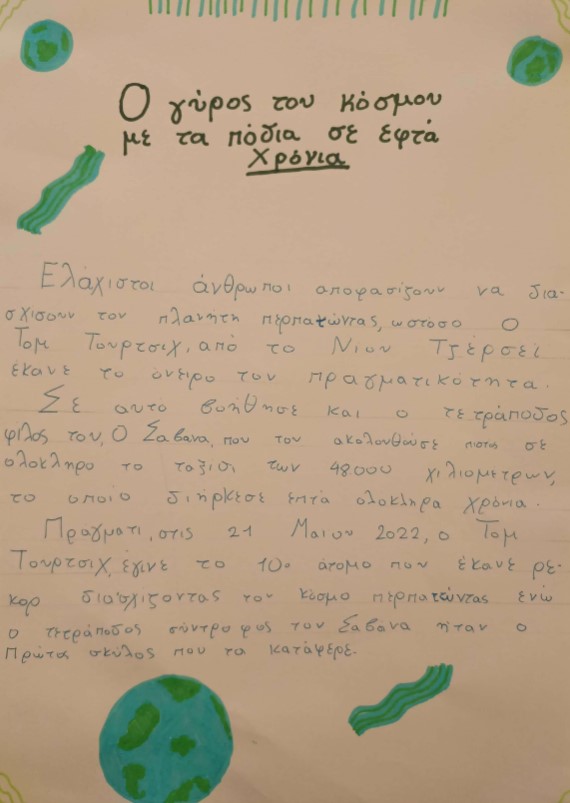 Ο γύρος του κόσμου
με τα πόδια σε εφτά
χρόνια
Ελάχιστοι άνθρωποι αποφασίζουν να δια-
σχίσουν τον πλανήτη περπατώντας, ωστόσο ο
Τομ Τουρτσιχ, από το Νιου Τζέρσεϊ
έκανε το όνειρο του πραγματικότητα.
Σε αυτο βοήθησε και ο τετράποδος
φίλος του, Ο Σαβανα, που τον ακολουθούσε πιστα σε
ολοκληρο το ταξίδι των 48.000 χιλιομετρων,
το οποίο διήρκεσε επτά ολοκληρα χρόνια.
Πραγματι, στις 21 Μαιου 2022, ο Τομ
Τουρτσιχ, έγινε το 10ο άτομο που έκανε ρε-
κορ διασχίζοντας τον κόσμο περπατώντας ενώ
ο τετράποδος σύντροφος του Σαβανα ήταν ο
πρώτος σκύλος που τα κατάφερε.